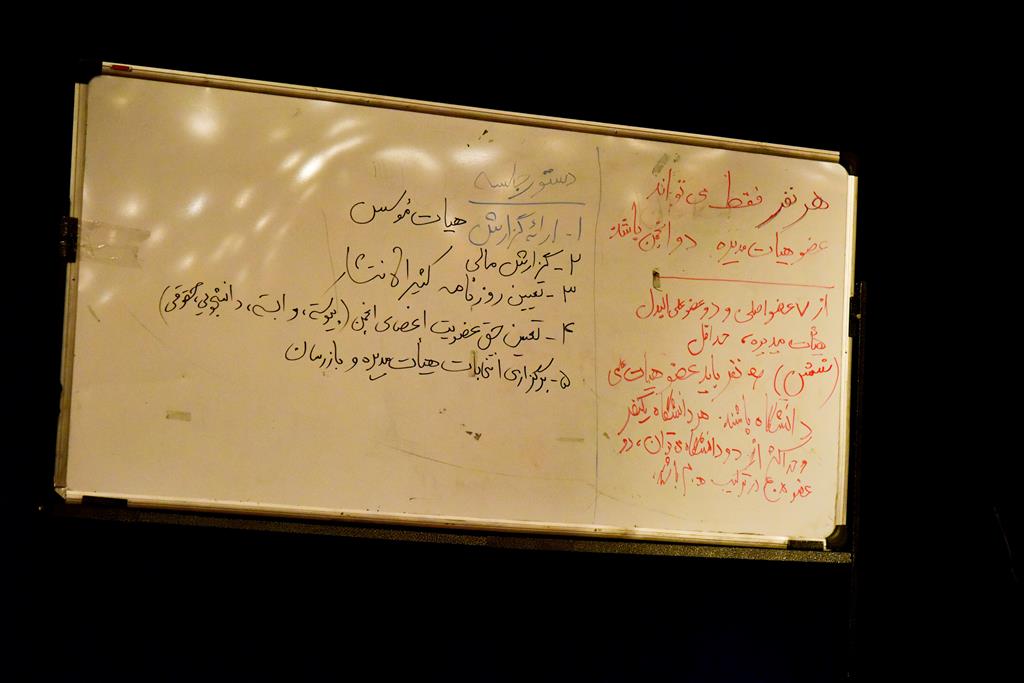 هر نفر فقط می تواند
عضو هیات مدیره دو انجمن باشد.
از ۷ عضو اصلی و دو عضو علی البدل
هیئت مدیره، حداقل
(شش) ۶ نفر باید عضو هیات علمی
دانشگاه باشند. هر دانشگاه یکنفر
و حداکثر از دو دانشگاه می توان، دو
عضو در ترکیب ه.م باشد.
دستور جلسه
۱- ارائه گزارش هیات مؤسس
۲- گزارش مالی
۳- تعیین روزنامه کثیرالانتشار
۴- تعیین حق عضویت اعضای انجمن (پیوسته، وابسته، دانشجویی، حقوقی)
۵- برگزاری انتخابات هیأت مدیره و بازرسان